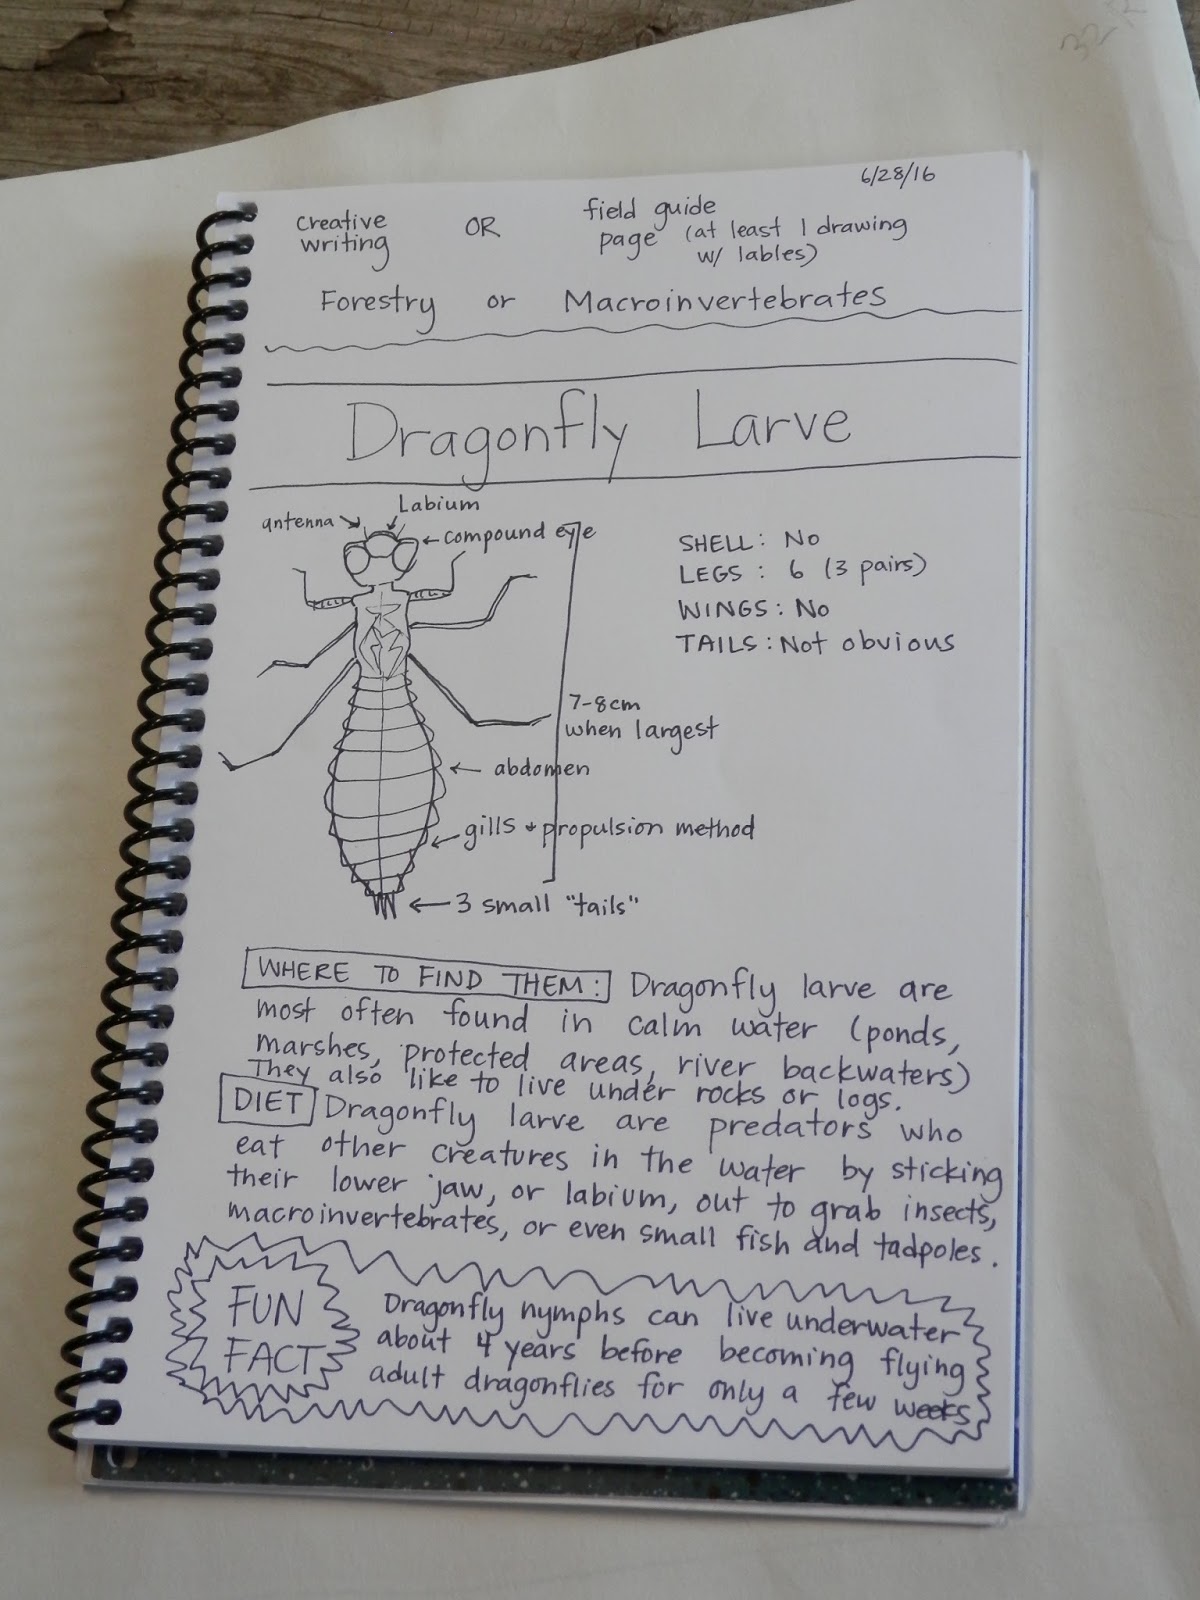 6/28/16
creative writing OR field guide page (at least 1 drawing w/ lables)
Forestry or Macroinvertebrates
Dragonfly Larve
antenna
Labium
compound eye
SHELL: No
LEGS: 6 (3 pairs)
WINGS: No
TAILS: Not obvious
7-8cm
when largest
abdomen
gills + propulsion method
3 small "tails"
WHERE TO FIND THEM: Dragonfly larve are
most often found in calm water (ponds,
marshes, protected areas, river backwaters)
They also like to live under rocks or logs.
DIET Dragonfly larve are predators who
eat other creatures in the water by sticking
their lower jaw, or labium, out to grab insects,
macroinvertebrates, or even small fish and tadpoles.
FUN
FACT
Dragonfly nymphs can live underwater
about 4 years before becoming flying
adult dragonflies for only a few weeks